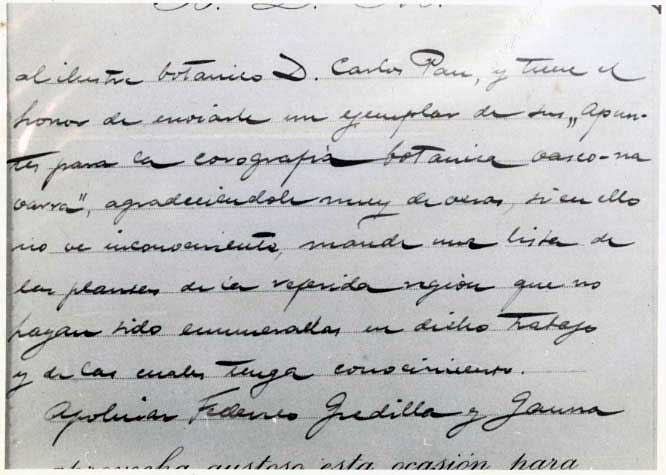 B. L. M.
al ilustre botánico D. Carlos Pau, y tiene el
honor de enviarle un ejemplar de sus „Apun-
tes para la corografía botánica vasco-na
varra", agradeciéndole muy de veras, si en ello
no ve inconveniente, mande una lista de
las plantas de la referida región que no
hayan sido enumeradas en dicho trabajo
y de las cuales tenga conocimiento.
Apolinar Federico Gredilla y Gauna
aprovecha gustoso esta ocasión para